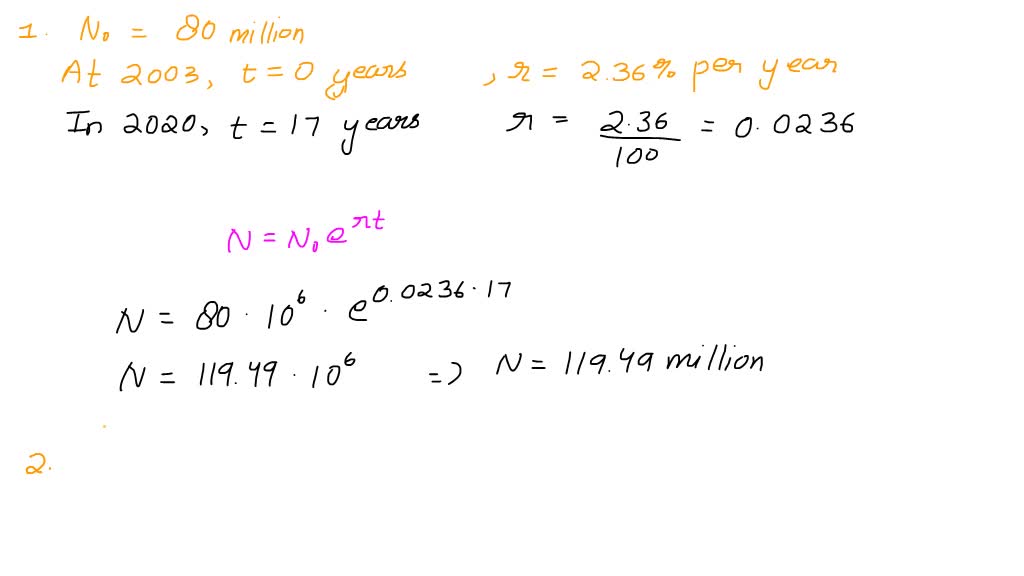 1. N₀ = 80 million
At 2003, t = 0 years , r = 2.36% per year
In 2020, t = 17 years r = 2.36/100 = 0.0236
N = N₀ e^rt
N = 80 · 10⁶ · e^0.0236·17
N = 119.49 · 10⁶ => N = 119.49 million
2.